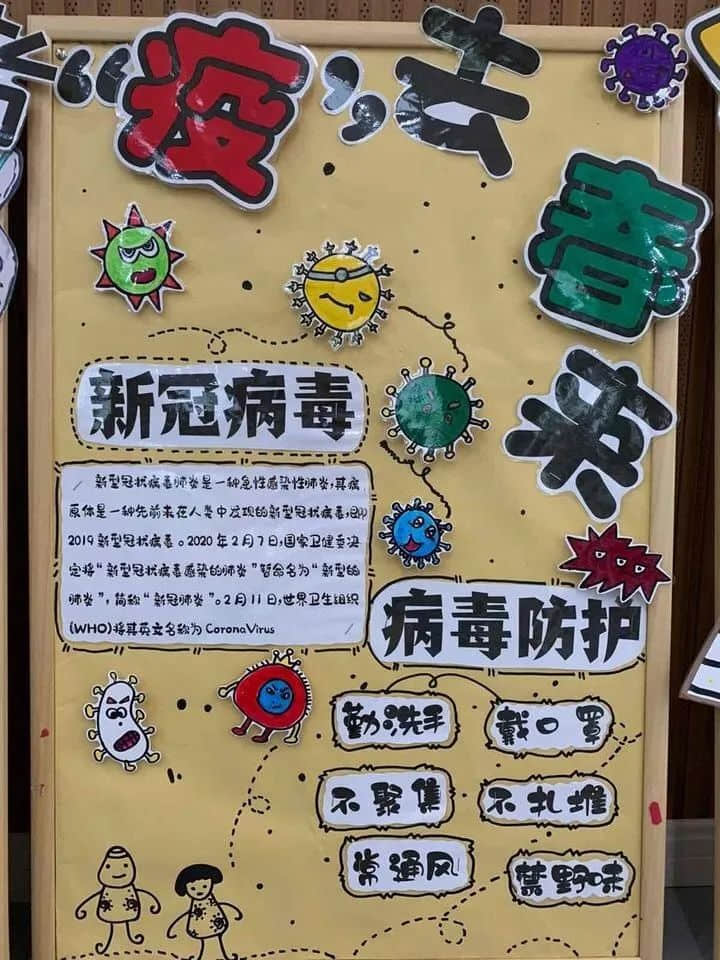 “疫”去
春
来
新冠病毒
新型冠状病毒肺炎是一种急性感染性肺炎,其病
原体是一种先前未在人类中发现的新型冠状病毒,即
2019新型冠状病毒。2020年2月7日,国家卫健委决
定将“新型冠状病毒感染的肺炎”暂命名为“新型的
肺炎”,简称“新冠肺炎”。2月11日,世界卫生组织
(WHO)将其英文名称为CoronaVirus
病毒防护
勤洗手
戴口罩
不聚集
不扎堆
常通风
禁野味